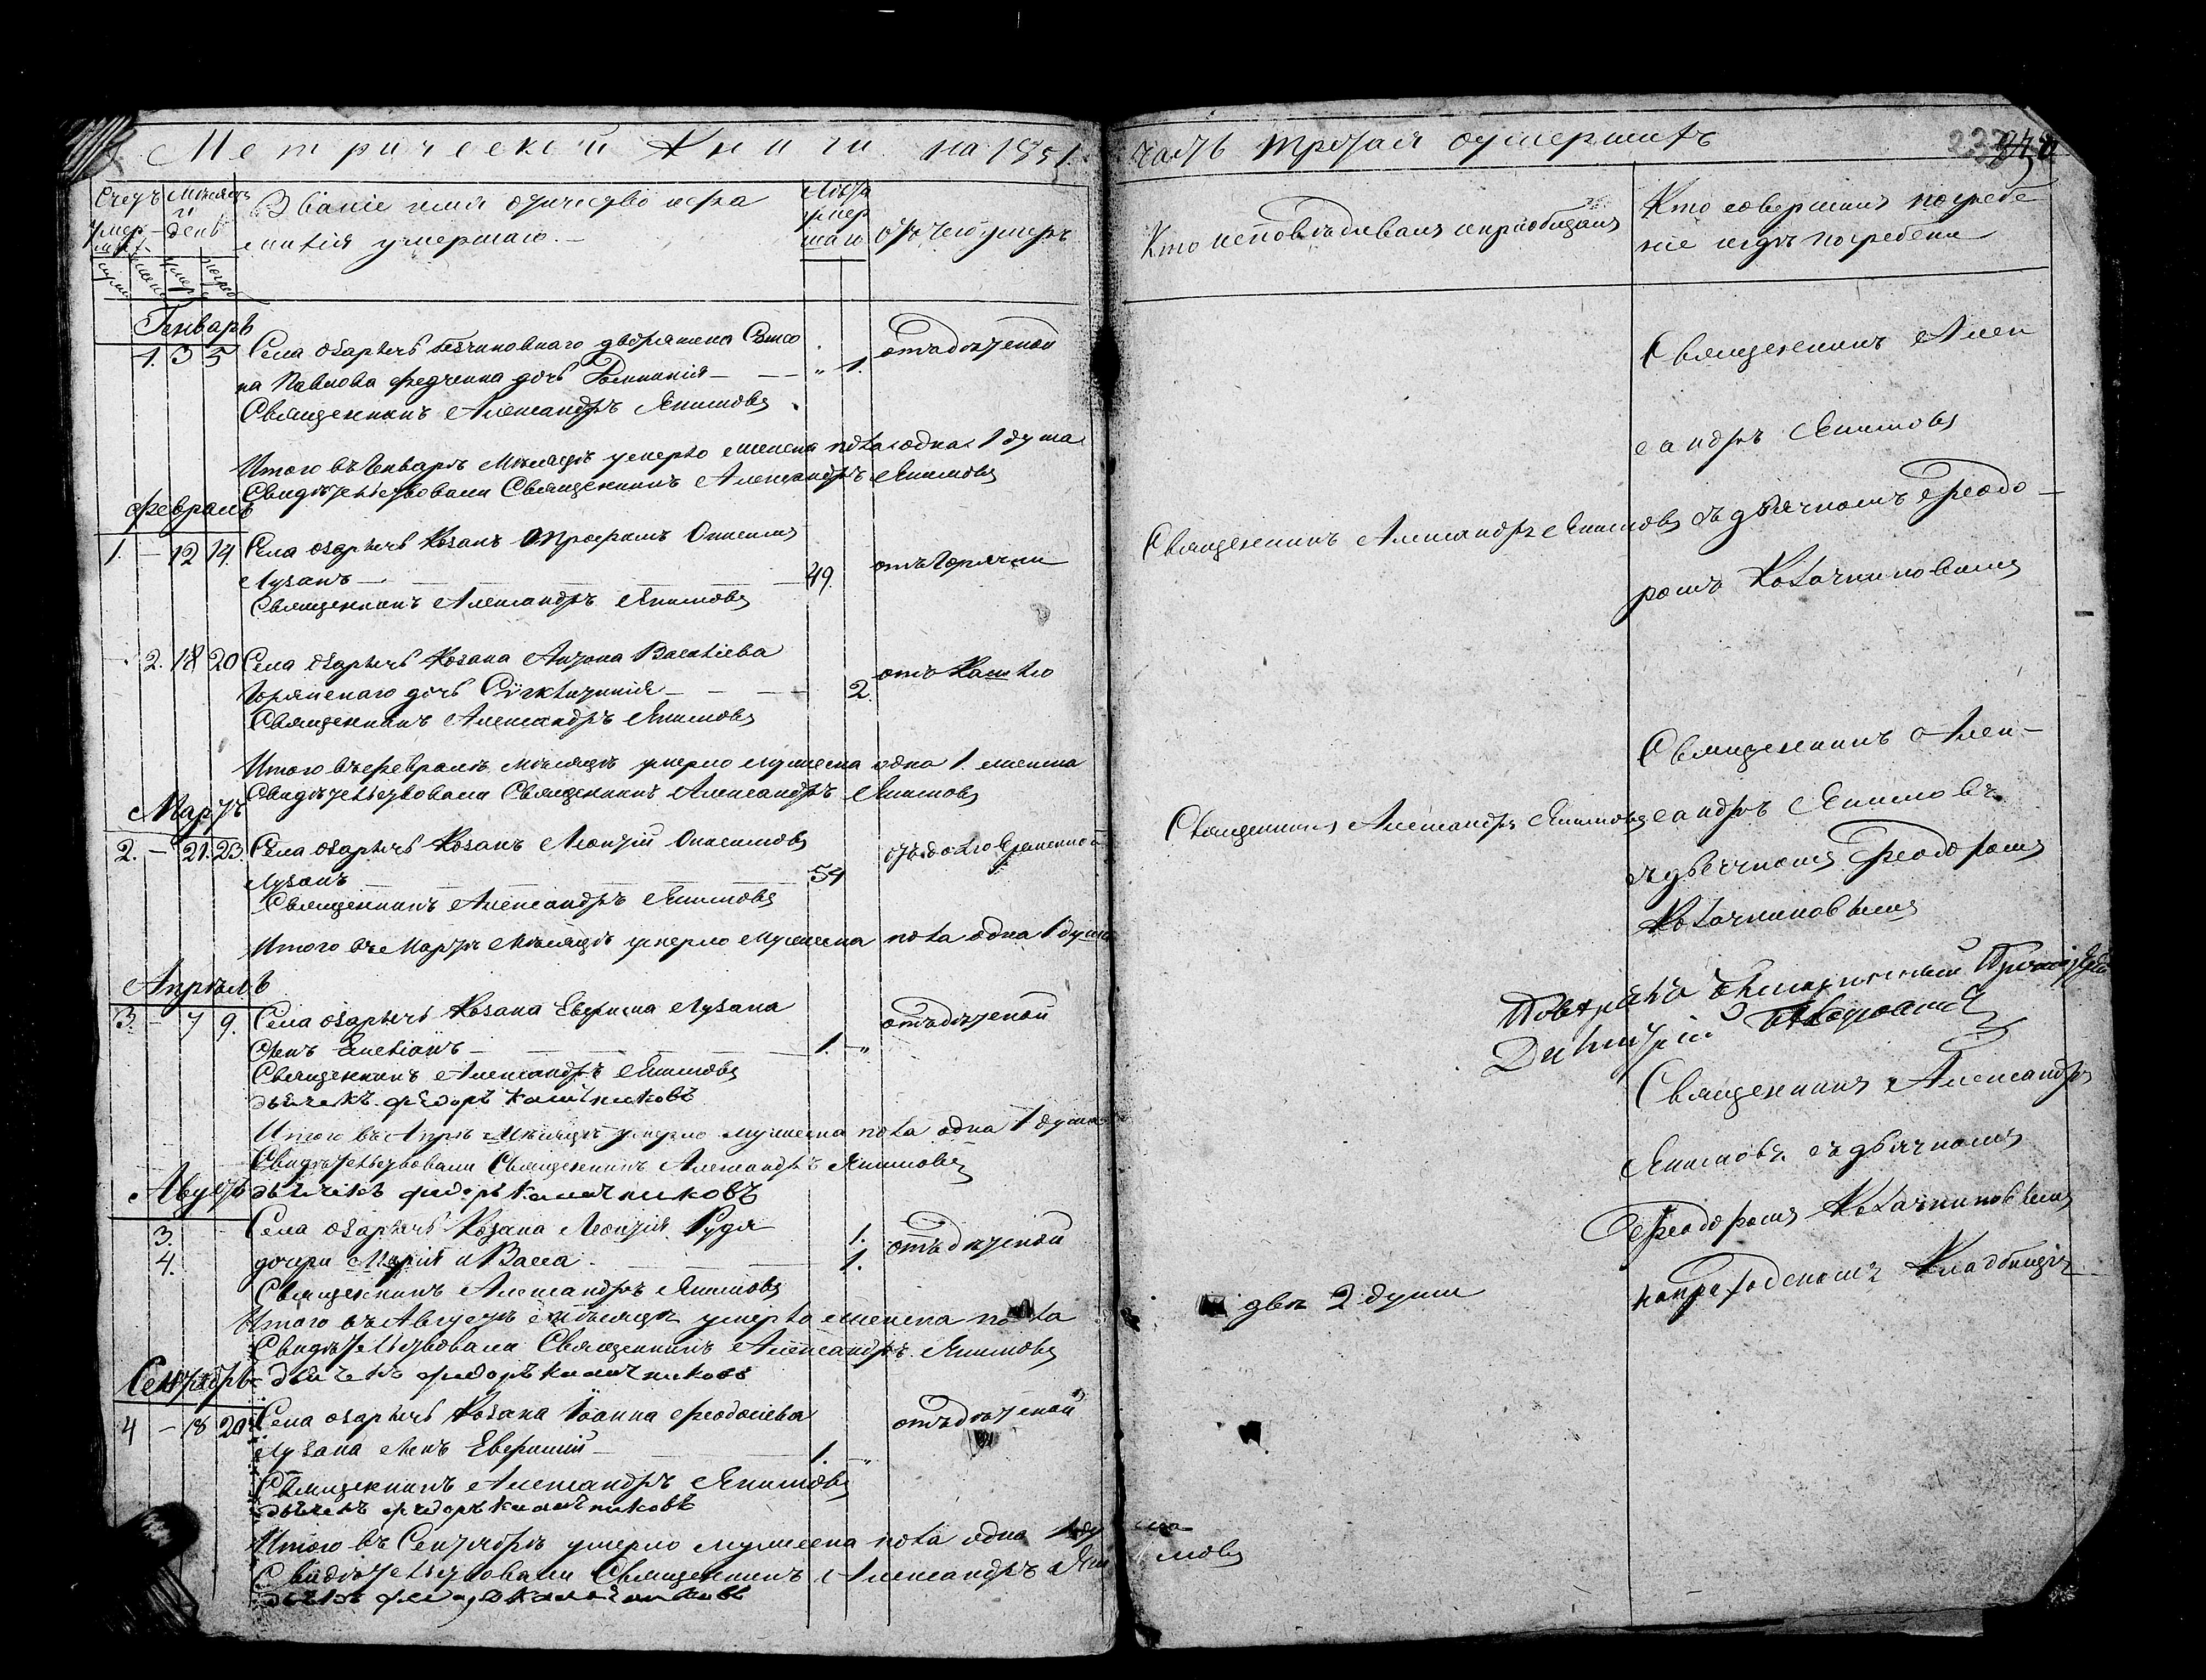 Метрической Книги на 1851. часть третая оумершихъ
Счетъ умер– шихъ
Мѣсяцъ и день
Званіе имя отчество и фа
милія умершаго.–
Лѣта умер шаго
отъ чего умеръ
Кто исповѣдывалъ и приобщалъ
Кто совершалъ погребе
ніе и гдѣ погребены
Генварь
1. 3 5 Села Озаричь безчиновнаго дворянина
на Павлова Федченка дочь — " 1. отъ дѣтской
Священникъ Александръ Якимовъ
Священникъ Алек
сандръ Якимовъ
Итого въ Генварѣ Мѣсяцѣ умерло женска пола одна 1 душа
Свидѣтельствовали Священникъ Александръ Якимовъ
Февраль
1. – 12 14. Села Озаричь Козакъ Онисимовъ
Лузанъ — 49. отъ Горячки
Священникъ Александръ Якимовъ
Священникъ Александръ Якимовъ съ дьячкомъ Феодо–
ромъ Колачниковымъ
2. 18 20 Села Озаричь Козака Антона Василіева
дочь — 2. отъ Кашлю
Священникъ Александръ Якимовъ
Священникъ Алек–
сандръ Якимовъ
Итого въ Февралѣ Мѣсяцѣ умерло мужеска одна 1. женска
Свидѣтельствовали Священникъ Александръ Якимовъ
Мартъ
2. – 21. 23. Села Озаричь Козакъ Леонтій Онисимовъ
Лузанъ — 54
Священникъ Александръ Якимовъ
Священникъ Александръ Якимовъ
съ дьячкомъ Феодоромъ
Колачниковымъ
Итого въ Мартѣ Мѣсяцѣ умерло Мужеска пола одна 1 душа
Апрѣль
3. – 7 9. Села Озаричь Козака Лузана
сынъ — 1. – " отъ дѣтской
Священникъ Александръ Якимовъ
дьячекъ федоръ калачниковъ
Дмитрій
Священникъ Александръ
Якимовъ съ дьячкомъ
Феодоромъ Колачниковымъ
на приходскомъ Кладбищѣ
Итого въ Апрѣ Мѣсяцѣ умерло мужеска пола одна 1 душа
Свидѣтельствовали Священникъ Александръ Якимовъ
дьячекъ федоръ калачниковъ
Августъ
3. Села Озаричь Козака Леонтія Рудя 1. отъ дѣтской
4. дочери Марія и Васса — 1.
Священникъ Александръ Якимовъ
Итого въ Августѣ Мѣсяцѣ умерло женска пола двѣ 2 души
Свидѣтельствовали Священникъ Александръ Якимовъ
дьячекъ федоръ калачниковъ
Сентябрь
4 – 18 20 Села Озаричь Козака Іоанна Феодосіева отъ дѣтской
Лузана сынъ — 1. "
Священникъ Александръ Якимовъ
дьячекъ федоръ калачниковъ
Итого въ Сентябрѣ умерло мужеска пола одна 1 душа
Свидѣтельствовали Священникъ Александръ Якимовъ
дьячекъ